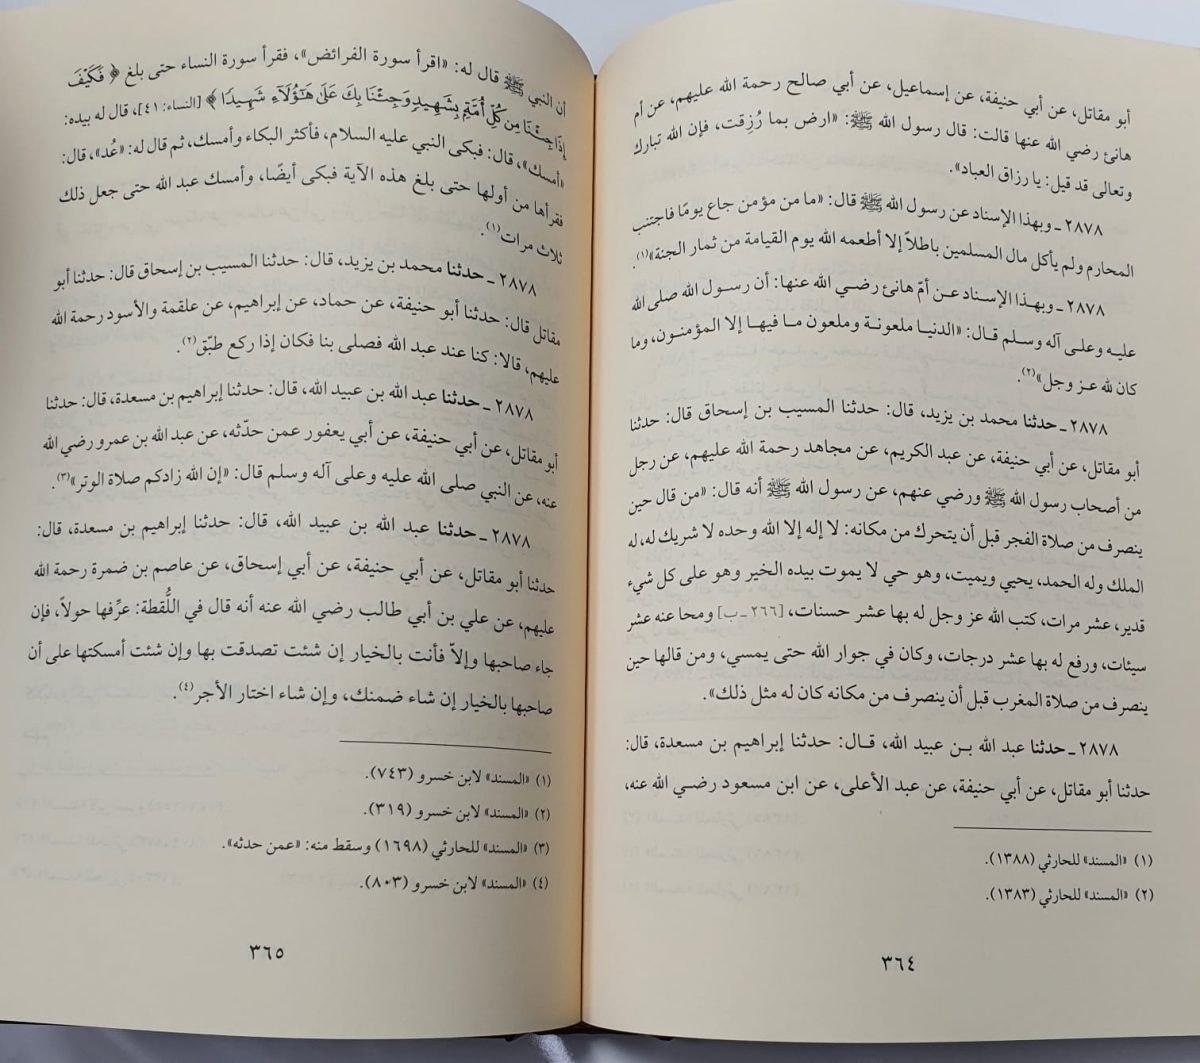 أبو مقاتل، عن أبي حنيفة، عن إسماعيل، عن أبي صالح رحمة الله عليهم، عن أم
هانئ رضي الله عنها قالت: قال رسول الله ﷺ: «ارض بما رُزِقت، فإن الله تبارك
وتعالى قد قيل: يا رزاق العباد».
٢٨٧٨ ـ وبهذا الإسناد عن رسول الله ﷺ قال: «ما من مؤمن جاع يومًا فاجتنب
المحارم ولم يأكل مال المسلمين باطلاً إلا أطعمه الله يوم القيامة من ثمار الجنة»(١).
٢٨٧٨ ـ وبهـذا الإسـناد عـن أمّ هانئ رضـي الله عنها: أن رسـول الله صلى الله
عليـه وعلـى آله وسـلم قـال: «الدنيـا ملعونـة وملعون مـا فيهـا إلا المؤمنـون، وما
كان لله عـز وجل»(٢).
٢٨٧٨ ـ حدثنا محمد بن يزيد، قال: حدثنا المسيب بن إسحاق قال: حدثنا
أبو مقاتل، عن أبي حنيفة، عن عبد الكريم، عن مجاهد رحمة الله عليهم، عن رجل
من أصحاب رسول الله ﷺ ورضي عنهم، عن رسول الله ﷺ أنه قال: «من قال حين
ينصرف من صلاة الفجر قبل أن يتحرك من مكانه: لا إله إلا الله وحده لا شريك له، له
الملك وله الحمد، يحيي ويميت، وهو حي لا يموت بيده الخير وهو على كل شيء
قدير، عشر مرات، كتب الله عز وجل له بها عشر حسنات، [٢٦٦ ـ ب] ومحا عنه عشر
سيئات، ورفع له بها عشر درجات، وكان في جوار الله حتى يمسي، ومن قالها حين
ينصرف من صلاة المغرب قبل أن ينصرف من مكانه كان له مثل ذلك».
٢٨٧٨ ـ حدثنا عبد الله بـن عبيد الله، قـال: حدثنا إبراهيم بن مسعدة، قال:
حدثنا أبو مقاتل، عن أبي حنيفة، عن عبد الأعلى، عن ابن مسعود رضـي الله عنه،
(١) «المسند» للحارثي (١٣٨٨).
(٢) «المسند» للحارثي (١٣٨٣).
٣٦٤
أن النبي ﷺ قال له: «اقرأ سورة الفرائض»، فقرأ سورة النساء حتى بلغ ﴿ فَكَيْفَ
إِذَا جِئْنَا مِن كُلِّ أُمَّةٍ بِشَهِيدٍ وَجِئْنَا بِكَ عَلَىٰ هَٰؤُلَاءِ شَهِيدًا ﴾ [النساء: ٤١]، قال له بيده:
«أمسك»، قال: فبكى النبي عليه السلام، فأكثر البكاء وأمسك، ثم قال له: «عُد»، قال:
فقرأها من أولها حتى بلغ هذه الآية فبكى أيضًا، وأمسك عبد الله حتى جعل ذلك
ثلاث مرات(١).
٢٨٧٨ ـ حدثنا محمد بن يزيد، قال: حدثنا المسيب بن إسحاق قال: حدثنا أبو
مقاتل قال: حدثنا أبو حنيفة، عن حماد، عن إبراهيم، عن علقمة والأسود رحمة الله
عليهم، قالا: كنا عند عبد الله فصلى بنا فكان إذا ركع طبّق(٢).
٢٨٧٨ ـ حدثنا عبد الله بن عبيد الله، قال: حدثنا إبراهيم بن مسعدة، قال: حدثنا
أبو مقاتل، عن أبي حنيفة، عن أبي يعفور عمن حدّثه، عن عبد الله بن عمرو رضي الله
عنه، عن النبي صلى الله عليه وعلى آله وسلم قال: «إن الله زادكم صلاة الوتر»(٣).
٢٨٧٨ ـ حدثنا عبد الله بن عبيد الله، قال: حدثنا إبراهيم بن مسعدة، قال:
حدثنا أبو مقاتل، عن أبي حنيفة، عن أبي إسحاق، عن عاصم بن ضمرة رحمة الله
عليهم، عن علي بن أبي طالب رضي الله عنه أنه قال في اللُّقطة: عرِّفها حولاً، فإن
جاء صاحبها وإلاّ فأنت بالخيار إن شئت تصدقت بها وإن شئت أمسكتها على أن
صاحبها بالخيار إن شاء ضمنك، وإن شاء اختار الأجر(٤).
(١) «المسند» لابن خسرو (٧٤٣).
(٢) «المسند» لابن خسرو (٣١٩).
(٣) «المسند» للحارثي (١٦٩٨) وسقط منه: «عمن حدثه».
(٤) «المسند» لابن خسرو (٨٠٣).
٣٦٥